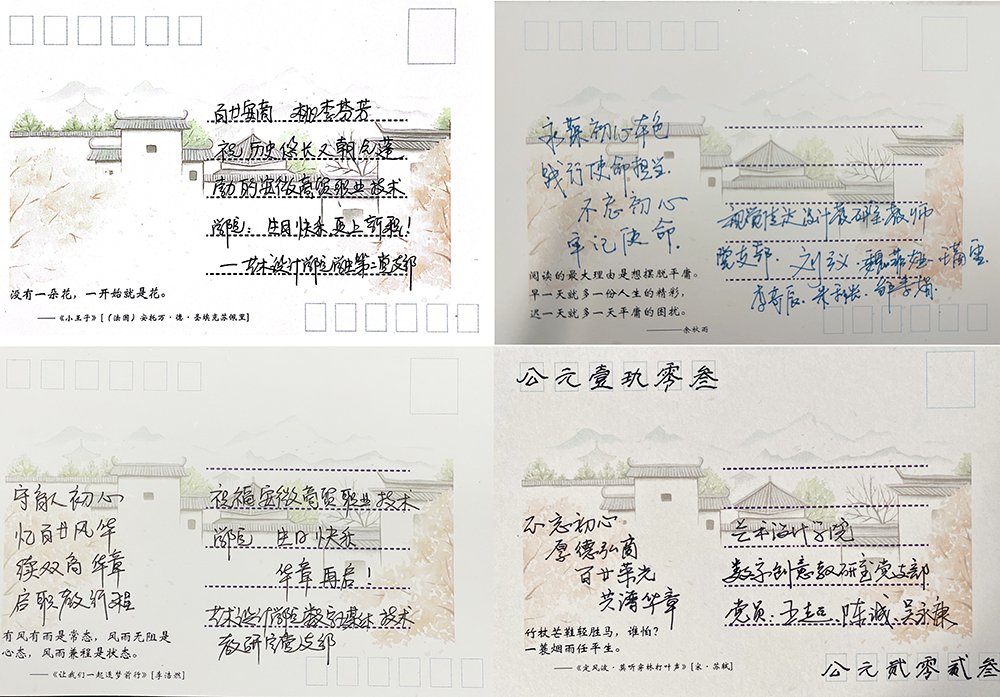 百廿安商 桃李芬芳
祝历史悠长又朝气蓬
勃的安徽商贸职业技术
学院：生日快乐 更上新程！
——艺术设计学院学生第二党支部
没有一朵花，一开始就是花。
——《小王子》[（法国）安托万·德·圣埃克苏佩里]
永葆初心本色
践行使命担当
不忘初心
牢记使命.
视觉传达设计教研室教师
党支部.
阅读的最大理由是想摆脱平庸。
早一天就多一份人生的精彩，
迟一天就多一天平庸的困扰。
——余秋雨
守育人初心
忆百廿风华
续双商华章
启职教新程
祝福安徽商贸职业技术
学院 生日快乐
华章再启！
艺术设计学院数字媒体技术
教研室党支部
有风有雨是常态，风雨无阻是
心态，风雨兼程是状态。
——《让我们一起逐梦前行》[李浩然]
公元壹玖零叁
不忘初心
厚德弘商
百廿荣光
共谱华章
艺术设计学院
数字创意教研室党支部
党员：王超、陈诚、吴永康
行杖芒鞋轻胜马，谁怕？
一蓑烟雨任平生。
——《定风波·莫听穿林打叶声》[宋·苏轼]
公元贰零贰叁